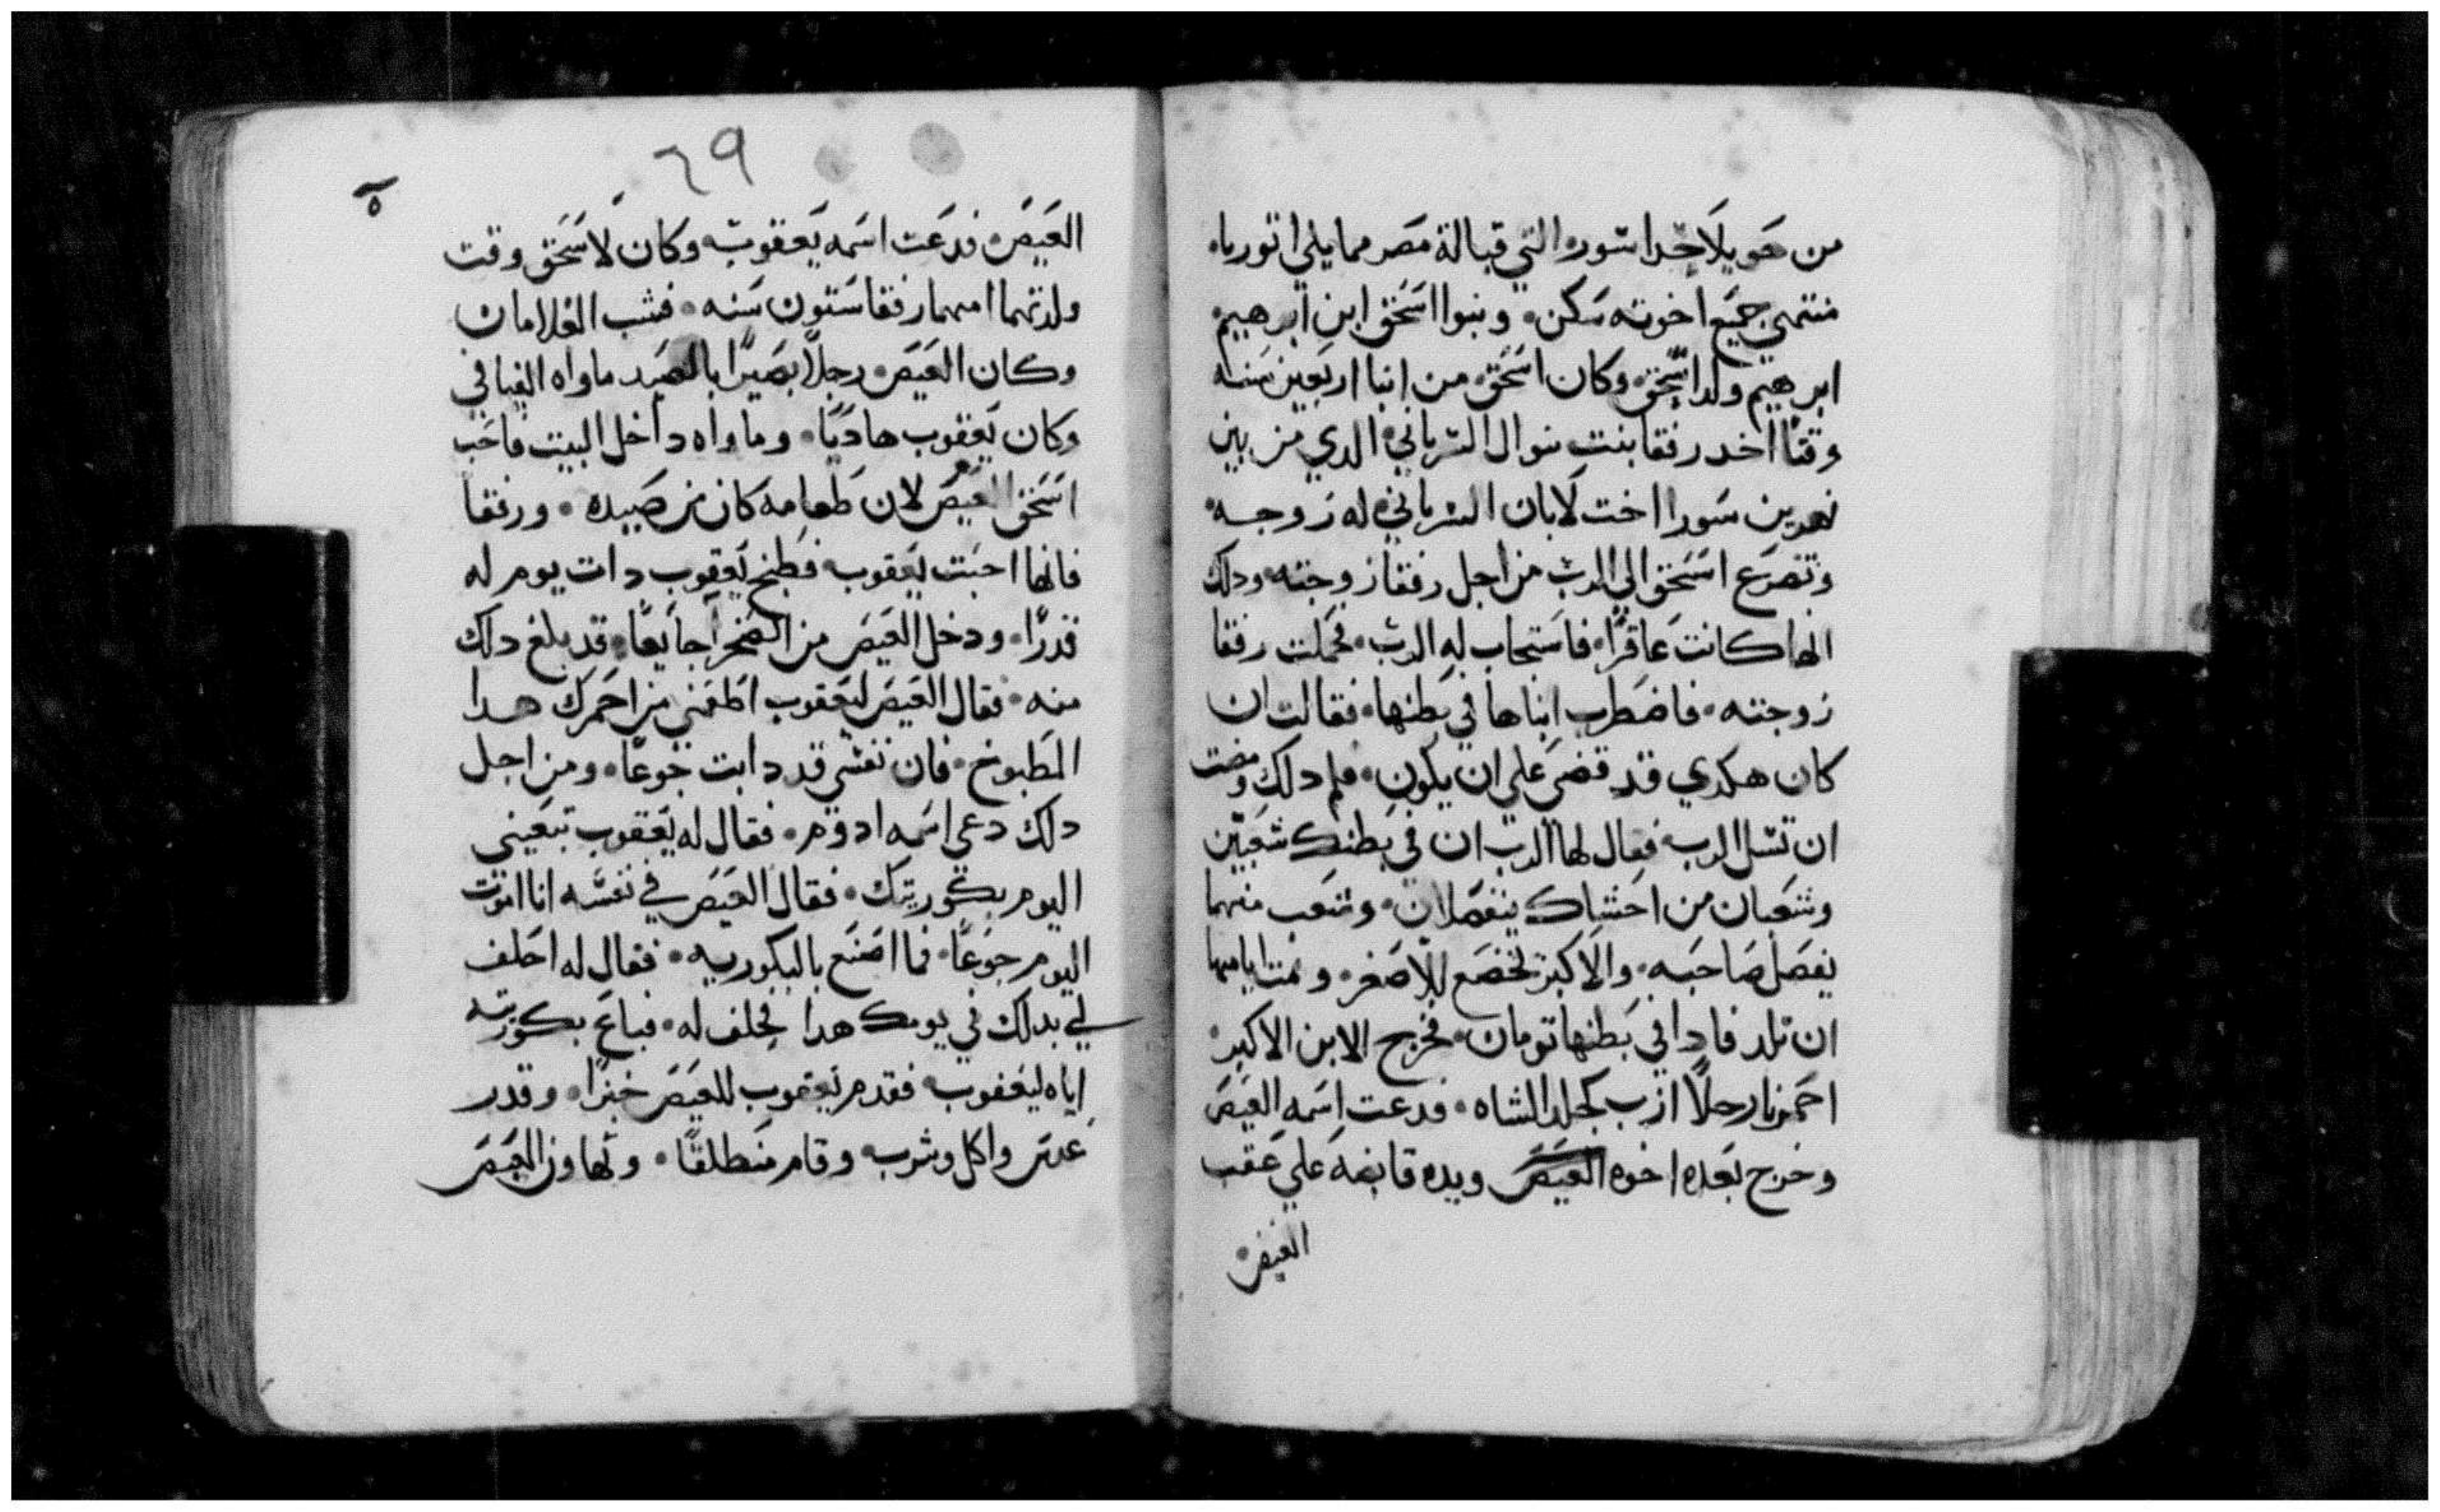 من حويلا حدا سور التي قبالة مصر مما يلي اتوريا
منتهي جميع اخوته سكن وبنوا اسحق ابن ابرهيم
ابرهيم ولد اسحق وكان اسحق من ابنا اربعين سنه
وقتا اخد رفقا بنت بتوال السرياني الدي من بين
نهرين سورا اخت لابان السرياني له زوجه
وتضرع اسحق الي الرب من اجل رفقا زوجته ودلك
انها كانت عاقرا فاستجاب له الرب فحملت رفقا
زوجته فاضطرب ابناها في بطنها فقالت ان
كان هكدي قد قضي علي ان يكون فلم دلك ومضت
ان تسل الرب فقال لها الرب ان في بطنك شعبين
وشعبان من احشاك ينفصلان وشعب منهما
يفضل صاحبه والاكبر يخضع للاصغر وتمت ايامها
ان تلد فادا في بطنها تومان فخرج الابن الاكبر
رجلا ازب كجلد الشاه فدعت اسمه العيص
وخرج بعده اخوه العيص ويده قابضه علي عقب
العيص
٦٩
العيص فدعت اسمه يعقوب وكان لاسحق وقت
ولدتهما امهما رفقا ستون سنه فشب الغلامان
وكان العيص رجلا بصيرا بالصيد ماواه الفيافي
وكان يعقوب هاديا وماواه داخل البيت فاحب
اسحق العيص لان طعامه كان من صيده ورفقا
فانها احبت يعقوب فطبخ يعقوب دات يوم له
قدرا ودخل العيص من الصحرا جايعا قد بلغ دلك
منه فقال العيص ليعقوب اطعمني من احمرك هدا
المطبوخ فان نفسي قد دابت جوعا ومن اجل
دلك دعي اسمه ادوم فقال له يعقوب تبيعني
اليوم بكوريتك فقال العيص في نفسه انا اموت
اليوم جوعا فما اصنع بالبكوريه فقال له احلف
لي بدلك في يومك هدا فحلف له فباع بكوريته
اياه ليعقوب فقدم يعقوب للعيص خبزا وقدر
عدس واكل وشرب وقام منطلقا وتهاون العيص